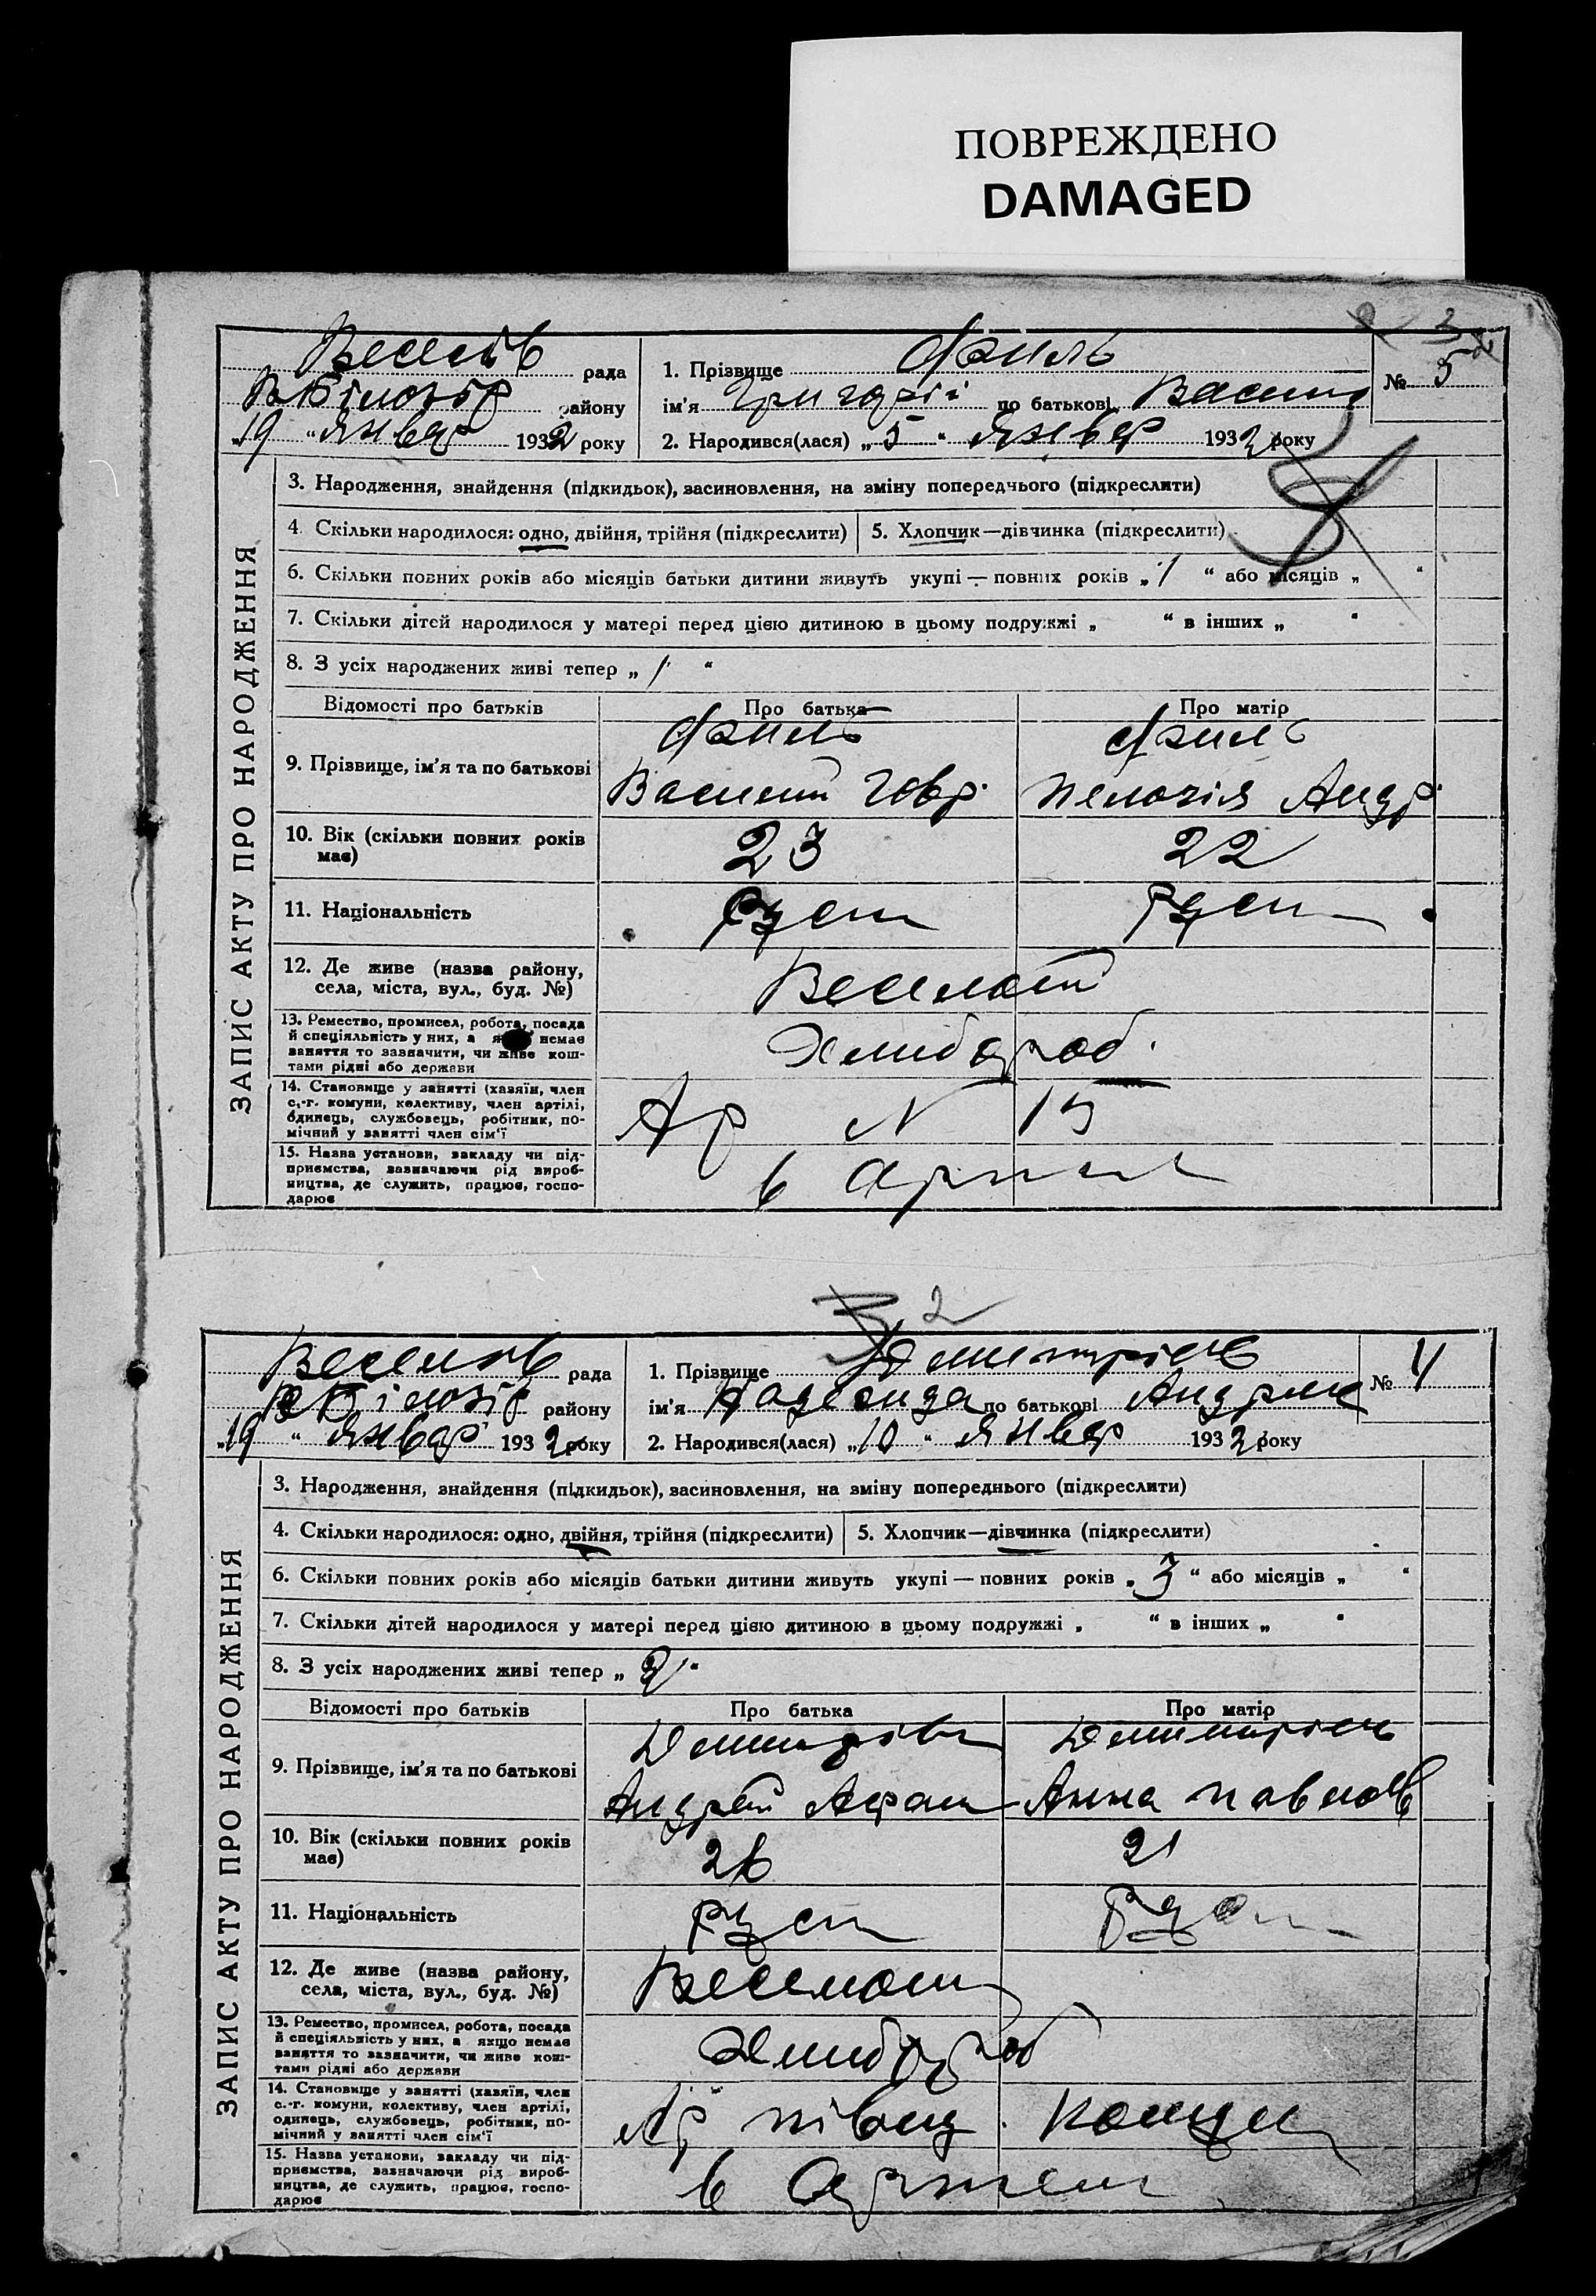 ПОВРЕЖДЕНО
DAMAGED
рада
району
19 " Январ 1932 року
1. Прізвище
ім'я Григорій по батькові Васил
2. Народився(лася) „ 5 " Январ 1932 року
№ 5
ЗАПИС АКТУ ПРО НАРОДЖЕННЯ
3. Народження, знайдення (підкидьок), засиновлення, на зміну попереднього (підкреслити)
4. Скільки народилося: одно, двійня, трійня (підкреслити)
5. Хлопчик—дівчинка (підкреслити)
6. Скільки повних років або місяців батьки дитини живуть укупі — повних років „ 1 " або місяців „ "
7. Скільки дітей народилося у матері перед цією дитиною в цьому подружжі „ " в інших „ "
8. З усіх народжених живі тепер „ 1 "
Відомості про батьків
Про батька
Про матір
9. Прізвище, ім'я та по батькові
Василий
Андр.
10. Вік (скільки повних років має)
23
22
11. Національність
Руси
Руси
12. Де живе (назва району, села, міста, вул., буд. №)
13. Ремество, промисел, робота, посада
й спеціяльність у них, а немає
заняття то зазначити, чи живе кош-
тами рідні або держави
Хлибороб.
14. Становище у занятті (хазяїн, член
с.-г. комуни, колективу, член артілі,
одинець, службовець, робітник, по-
мічний у занятті член сім'ї
Ар N
15. Назва установи, закладу чи під-
приємства, зазначаючи рід вироб-
ництва, де служить, працює, госпо-
дарює
в Артил
2
рада
району
19 " Январ 1932 року
1. Прізвище
ім'я Надежда по батькові Андрие
2. Народився(лася) „ 10 " Январ 1932 року
№ 4
ЗАПИС АКТУ ПРО НАРОДЖЕННЯ
3. Народження, знайдення (підкидьок), засиновлення, на зміну попереднього (підкреслити)
4. Скільки народилося: одно, двійня, трійня (підкреслити)
5. Хлопчик—дівчинка (підкреслити)
6. Скільки повних років або місяців батьки дитини живуть укупі — повних років „ 3 " або місяців „ "
7. Скільки дітей народилося у матері перед цією дитиною в цьому подружжі „ " в інших „ "
8. З усіх народжених живі тепер „ 2 "
Відомості про батьків
Про батька
Про матір
9. Прізвище, ім'я та по батькові
Андрей Афан
Анна Павлов
10. Вік (скільки повних років має)
26
21
11. Національність
Руси
Руси
12. Де живе (назва району, села, міста, вул., буд. №)
13. Ремество, промисел, робота, посада
й спеціяльність у них, а якщо немає
заняття то зазначити, чи живе кош-
тами рідні або держави
Хлибороб
14. Становище у занятті (хазяїн, член
с.-г. комуни, колективу, член артілі,
одинець, службовець, робітник, по-
мічний у занятті член сім'ї
Ар
15. Назва установи, закладу чи під-
приємства, зазначаючи рід вироб-
ництва, де служить, працює, госпо-
дарює
в Артели